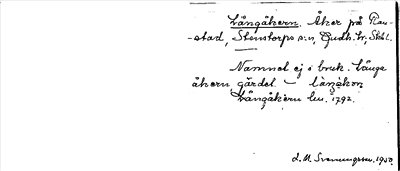 Långåkern. Åker på Ran-
-stad, Stenstorps s:n, Gudh. hd, Skbl.
Namnet ej i bruk. Långe
åkern, gärdet. – låŋåkɐn
Långåkern lu. 1792.
L. M. Svenungsson. 1930.